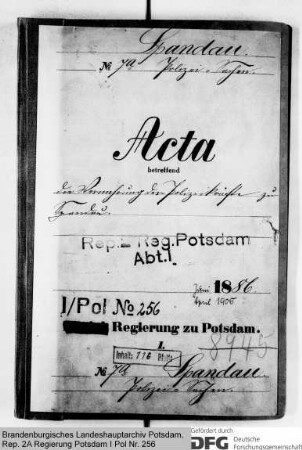 Spandau.
№ 7a Polizei-Sachen.
Acta
betreffend
die Vermehrung der Polizeikräfte zu
Spandau.
Rep.2 Reg.Potsdam
Abt.I.
1886.
April 1906
I/Pol No 256
Regierung zu Potsdam.
I.
8945
Inhalt: 116 Blatt
Spandau
№ 7a
Polizei-Sachen.
Brandenburgisches Landeshauptarchiv Potsdam,
Rep. 2A Regierung Potsdam I Pol Nr. 256
Gefördert durch
DFG Deutsche
Forschungsgemeinschaft